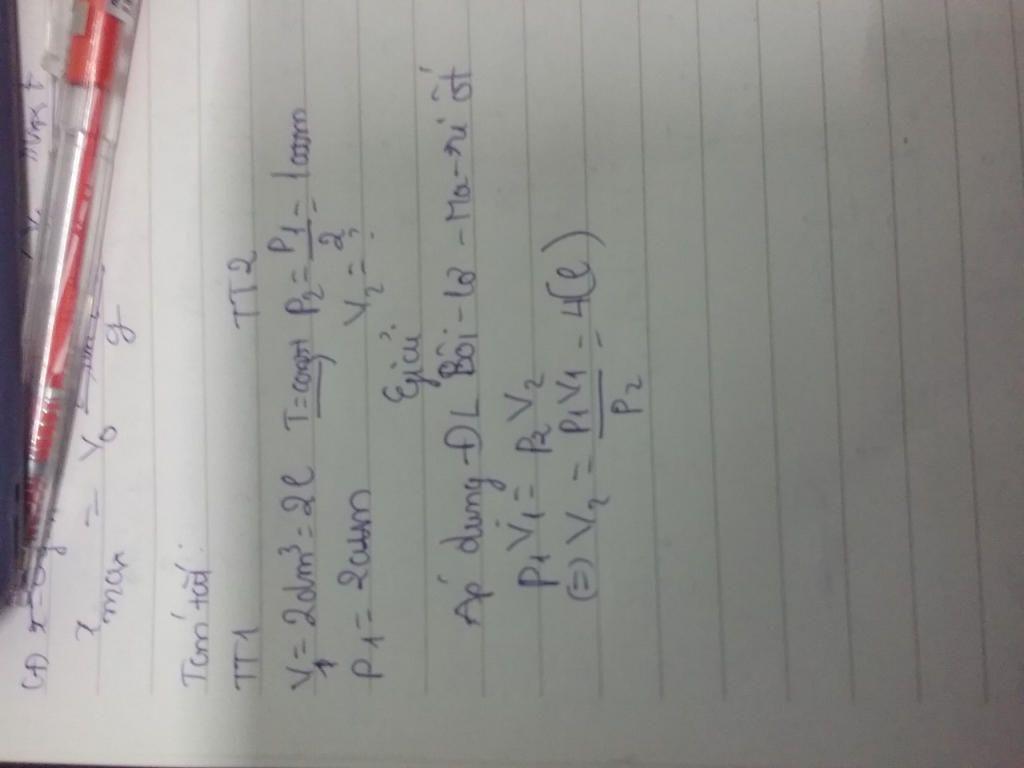 x max = V₀
g
Tóm tắt:
TT1 TT2
V₁ = 2dm³ = 2l T = const P₂ = P₁/2 = 1atm
P₁ = 2atm V₂ = ?
Giải:
Áp dụng ĐL Bôi-lơ-Ma-ri ốt
P₁V₁ = P₂V₂
(=) V₂ = P₁V₁/P₂ = 4(l)